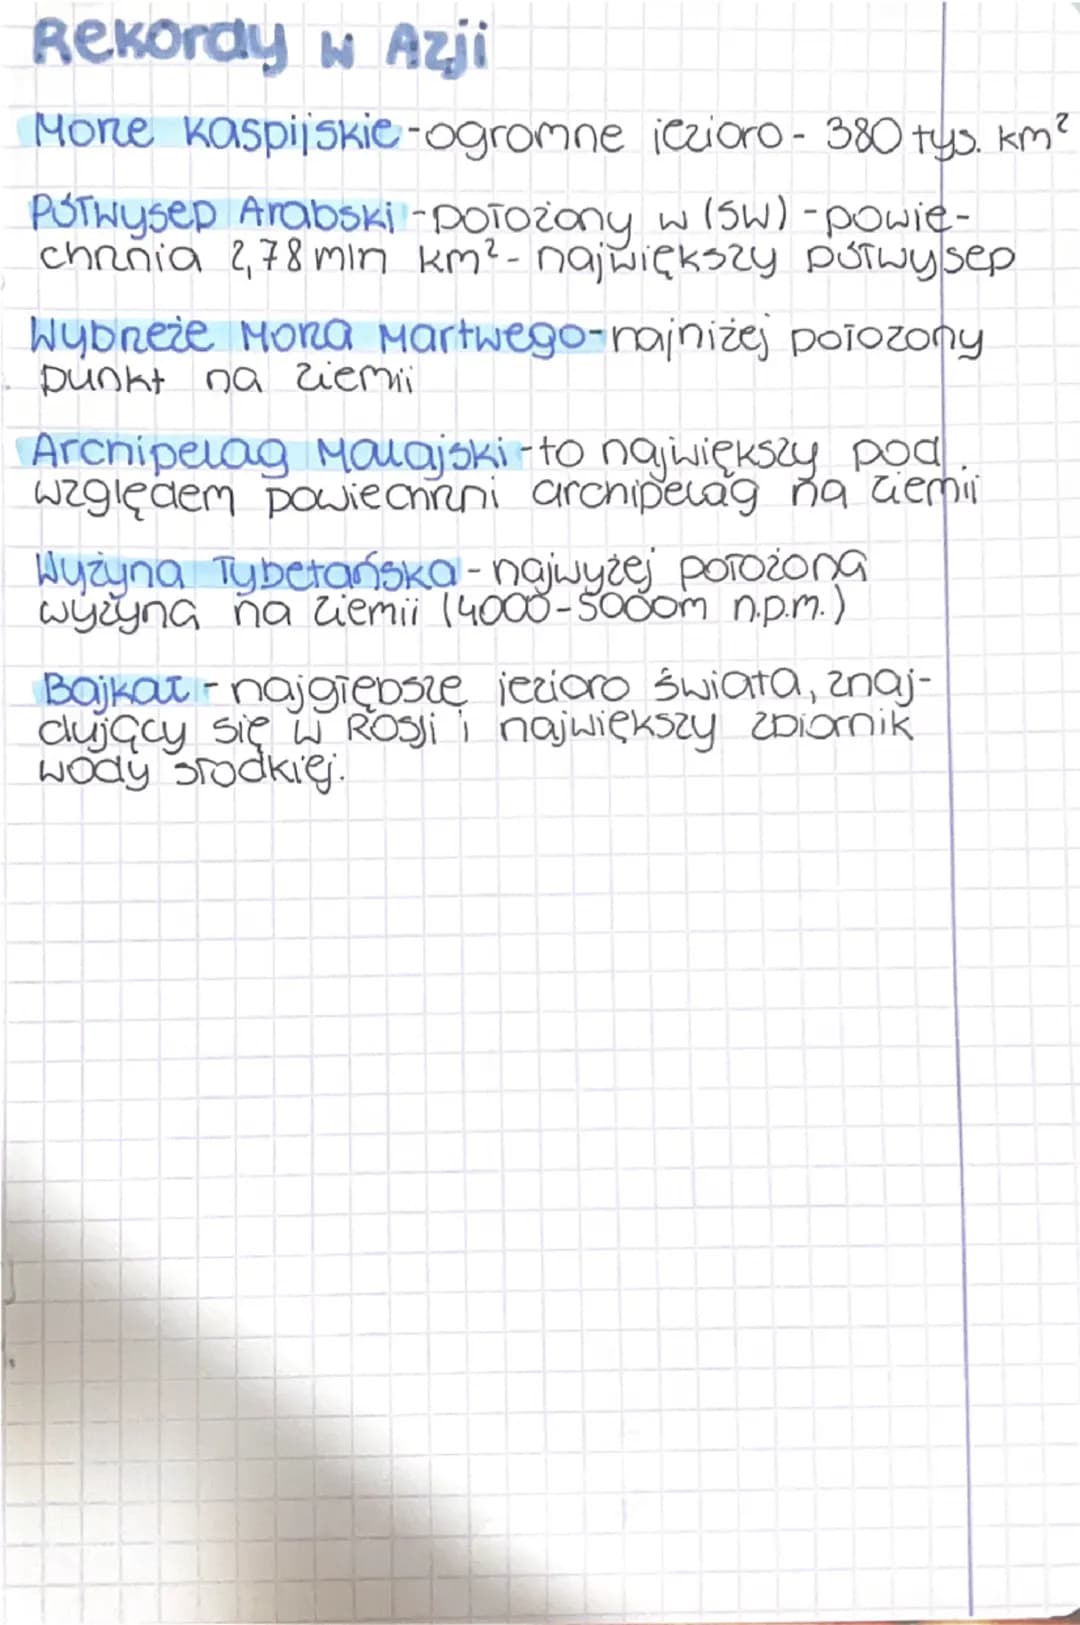 Rekordy w Azji
Morze Kaspijskie - ogromne jezioro - 380 tys. km²
Półwysep Arabski - położony w (SW) - powie-
rzchnia 2,78 mln km² - największy półwysep
Wybrzeże Morza Martwego - najniżej położony
punkt na ziemii
Archipelag Malajski - to największy pod
względem powierzchni archipelag na ziemii
Wyżyna Tybetańska - najwyżej położona
wyżyna na ziemii (4000-5000m n.p.m.)
Bajkał - najgłębsze jezioro świata, znaj-
dujący się w Rosji i największy zbiornik
wody słodkiej.